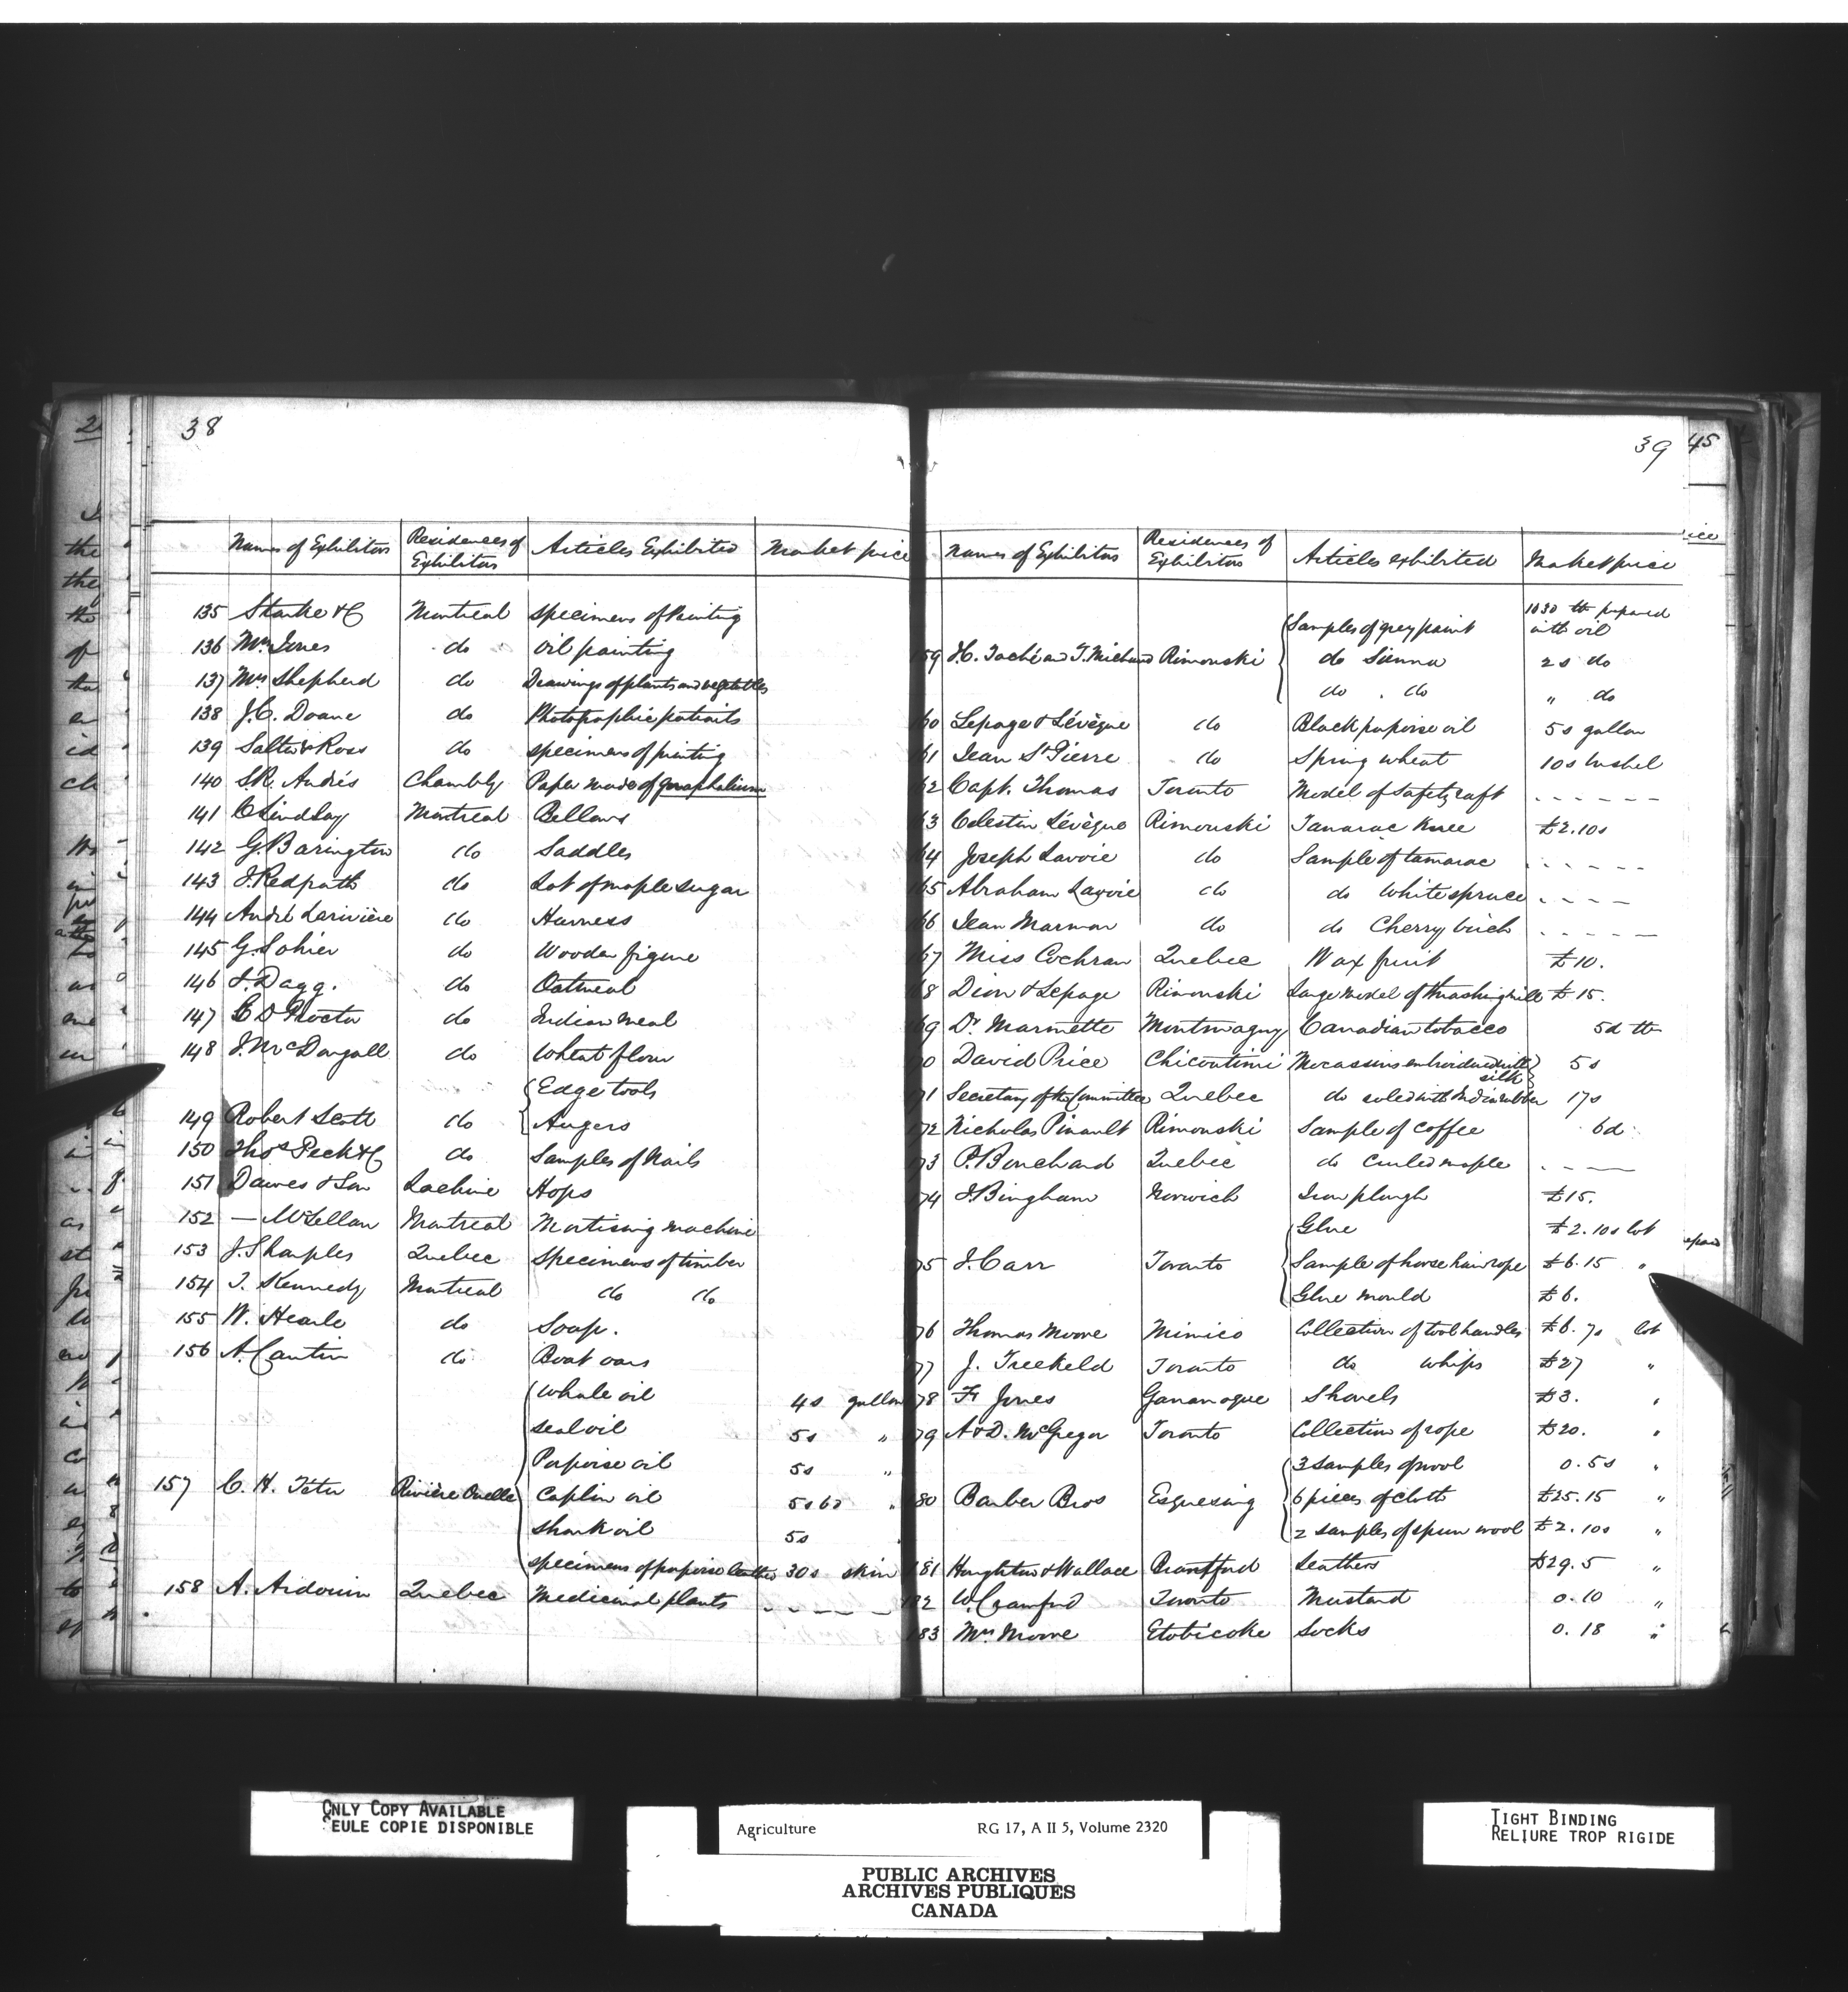 38
Names of Exhibitors Residences of Exhibitors Articles Exhibited Market price
135 Starke & C Montreal specimens of Printing
136 Mrs Jones do oil painting
137 Mrs Shepherd do Drawings of plants and vegetables
138 J.C. Doane do Photographic portraits
139 Salter & Ross do specimens of printing
140 S.R. Andrés Chambly Paper made of gnaphalium
141 C Lindsay Montreal Bellows
142 G. Barington do Saddles
143 J. Redpath do Lot of maple sugar
144 André Larivière do Harness
145 G. Lohier do Wooden figure
146 J. Dagg. do Oatmeal
147 C D Proctor do Indian meal
148 J. McDougall do Wheat flour
Edge tools
149 Robert Scott do Augers
150 Thos Peck & C do Samples of Nails
151 Dawes & Son Lachine Hops
152 — McLellan Montreal Mortising machine
153 J. Sharples Quebec Specimens of timber
154 T. Kennedy Montreal do do
155 W. Hearle do Soap.
156 A. Cantin do Boat oars
Whale oil 4s gallon
seal oil 5s "
Porpoise oil 5s "
157 C. H. Tétu Rivière Ouelle Caplin oil 5s 6d "
Shark oil 5s
specimens of porpoise leather 30s skin
158 A. Ardouin Quebec Medicinal plants - - - -
39
Names of Exhibitors Residences of Exhibitors Articles exhibited Market price
Samples of grey paint prepared with oil
59 J.C. Taché and T. Michaud Rimouski do Sienna 2s do
do . do " do
60 Lepage & Lévèque do Black porpoise oil 5s gallon
61 Jean St Pierre do Spring wheat 10s bushel
62 Capt. Thomas Toronto Model of safety raft - - - - - -
63 Celestin Lévèque Rimouski Tamarac Knee £2.10s
64 Joseph Lavoie do Sample of tamarac - - - - -
65 Abraham Lavoie do do White spruce - - - -
66 Jean Marmon do do Cherry birch - - - - -
67 Miss Cochran Quebec Wax fruit £10.
68 Dion & Lepage Rimouski Large model of thrashing mill £15.
69 Dr Marmette Montmagny Canadian tobacco 5d lb
70 David Price Chicoutimi Mocassins embroidered with silk 5s
71 Secretary of the Committee Quebec do soled with Indiarubber 17s
72 Nicholas Pinault Rimouski Sample of coffee 6d
73 P. Bouchard Quebec do Curled maple - - -
74 J. Bingham Norwich Iron plough £15.
Glue £2.10s lot
75 J. Carr Toronto Sample of horse hair rope £6.15 "
Glue mould £6.
76 Thomas Moore Mimico Collection of tool handles £6.7s lot
77 J. Treekeld Toronto do whips £27 "
78 Fr Jones Gananoque Shovels £3. "
79 A & D. McGregor Toronto Collection of rope £20. "
3 samples of wool 0.5s "
80 Barber Bros Esquesing 6 pieces of cloth £25.15 "
2 samples of spun wool £2.10s "
181 Houghton & Wallace Brantford Leathers £29.5 "
182 W. Crawford Toronto Mustard 0.10 "
183 Mrs Moore Etobicoke Socks 0.18 "
45
ONLY COPY AVAILABLE
SEULE COPIE DISPONIBLE
Agriculture RG 17, A II 5, Volume 2320
PUBLIC ARCHIVES
ARCHIVES PUBLIQUES
CANADA
TIGHT BINDING
RELIURE TROP RIGIDE